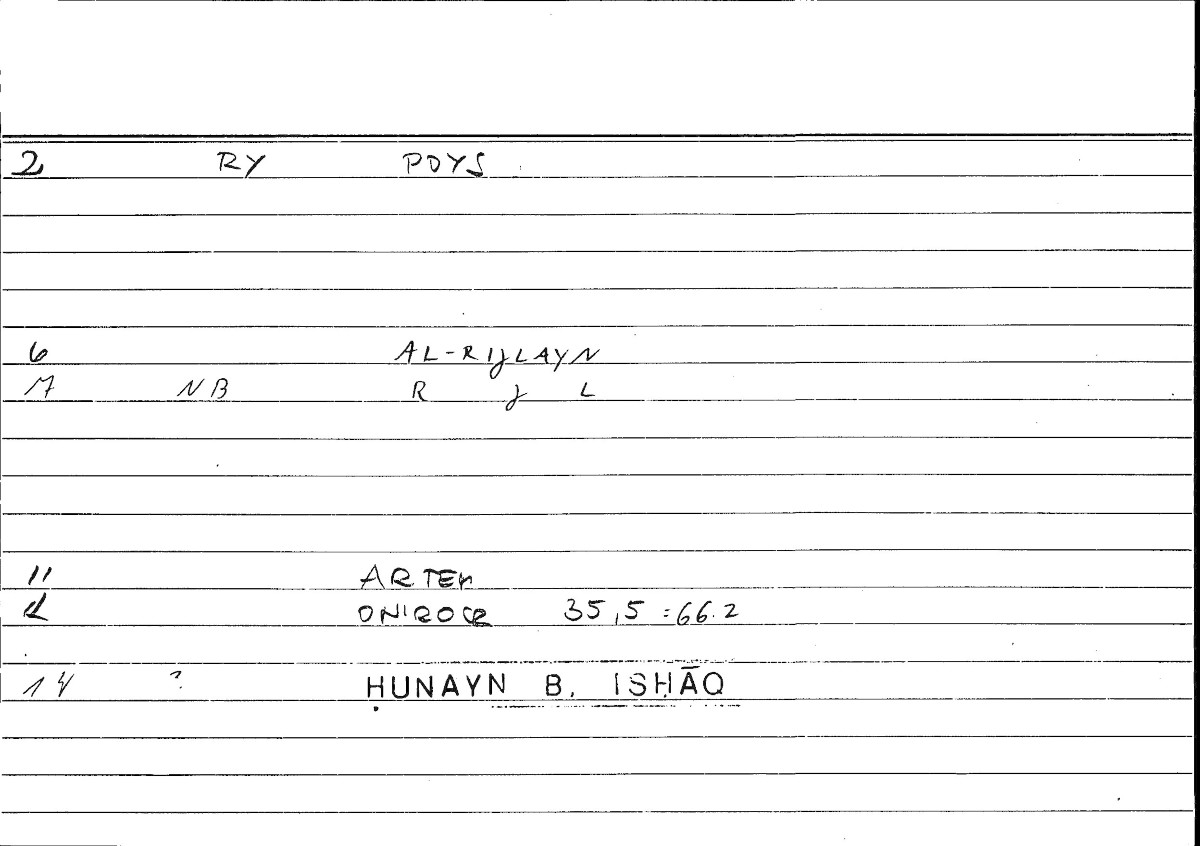 2 RY POYS
6 AL-RIJLAYN
7 NB R J L
11 ARTEM
ONIROCR 35,5 =66.2
14 ? ḤUNAYN B. ISḤĀQ